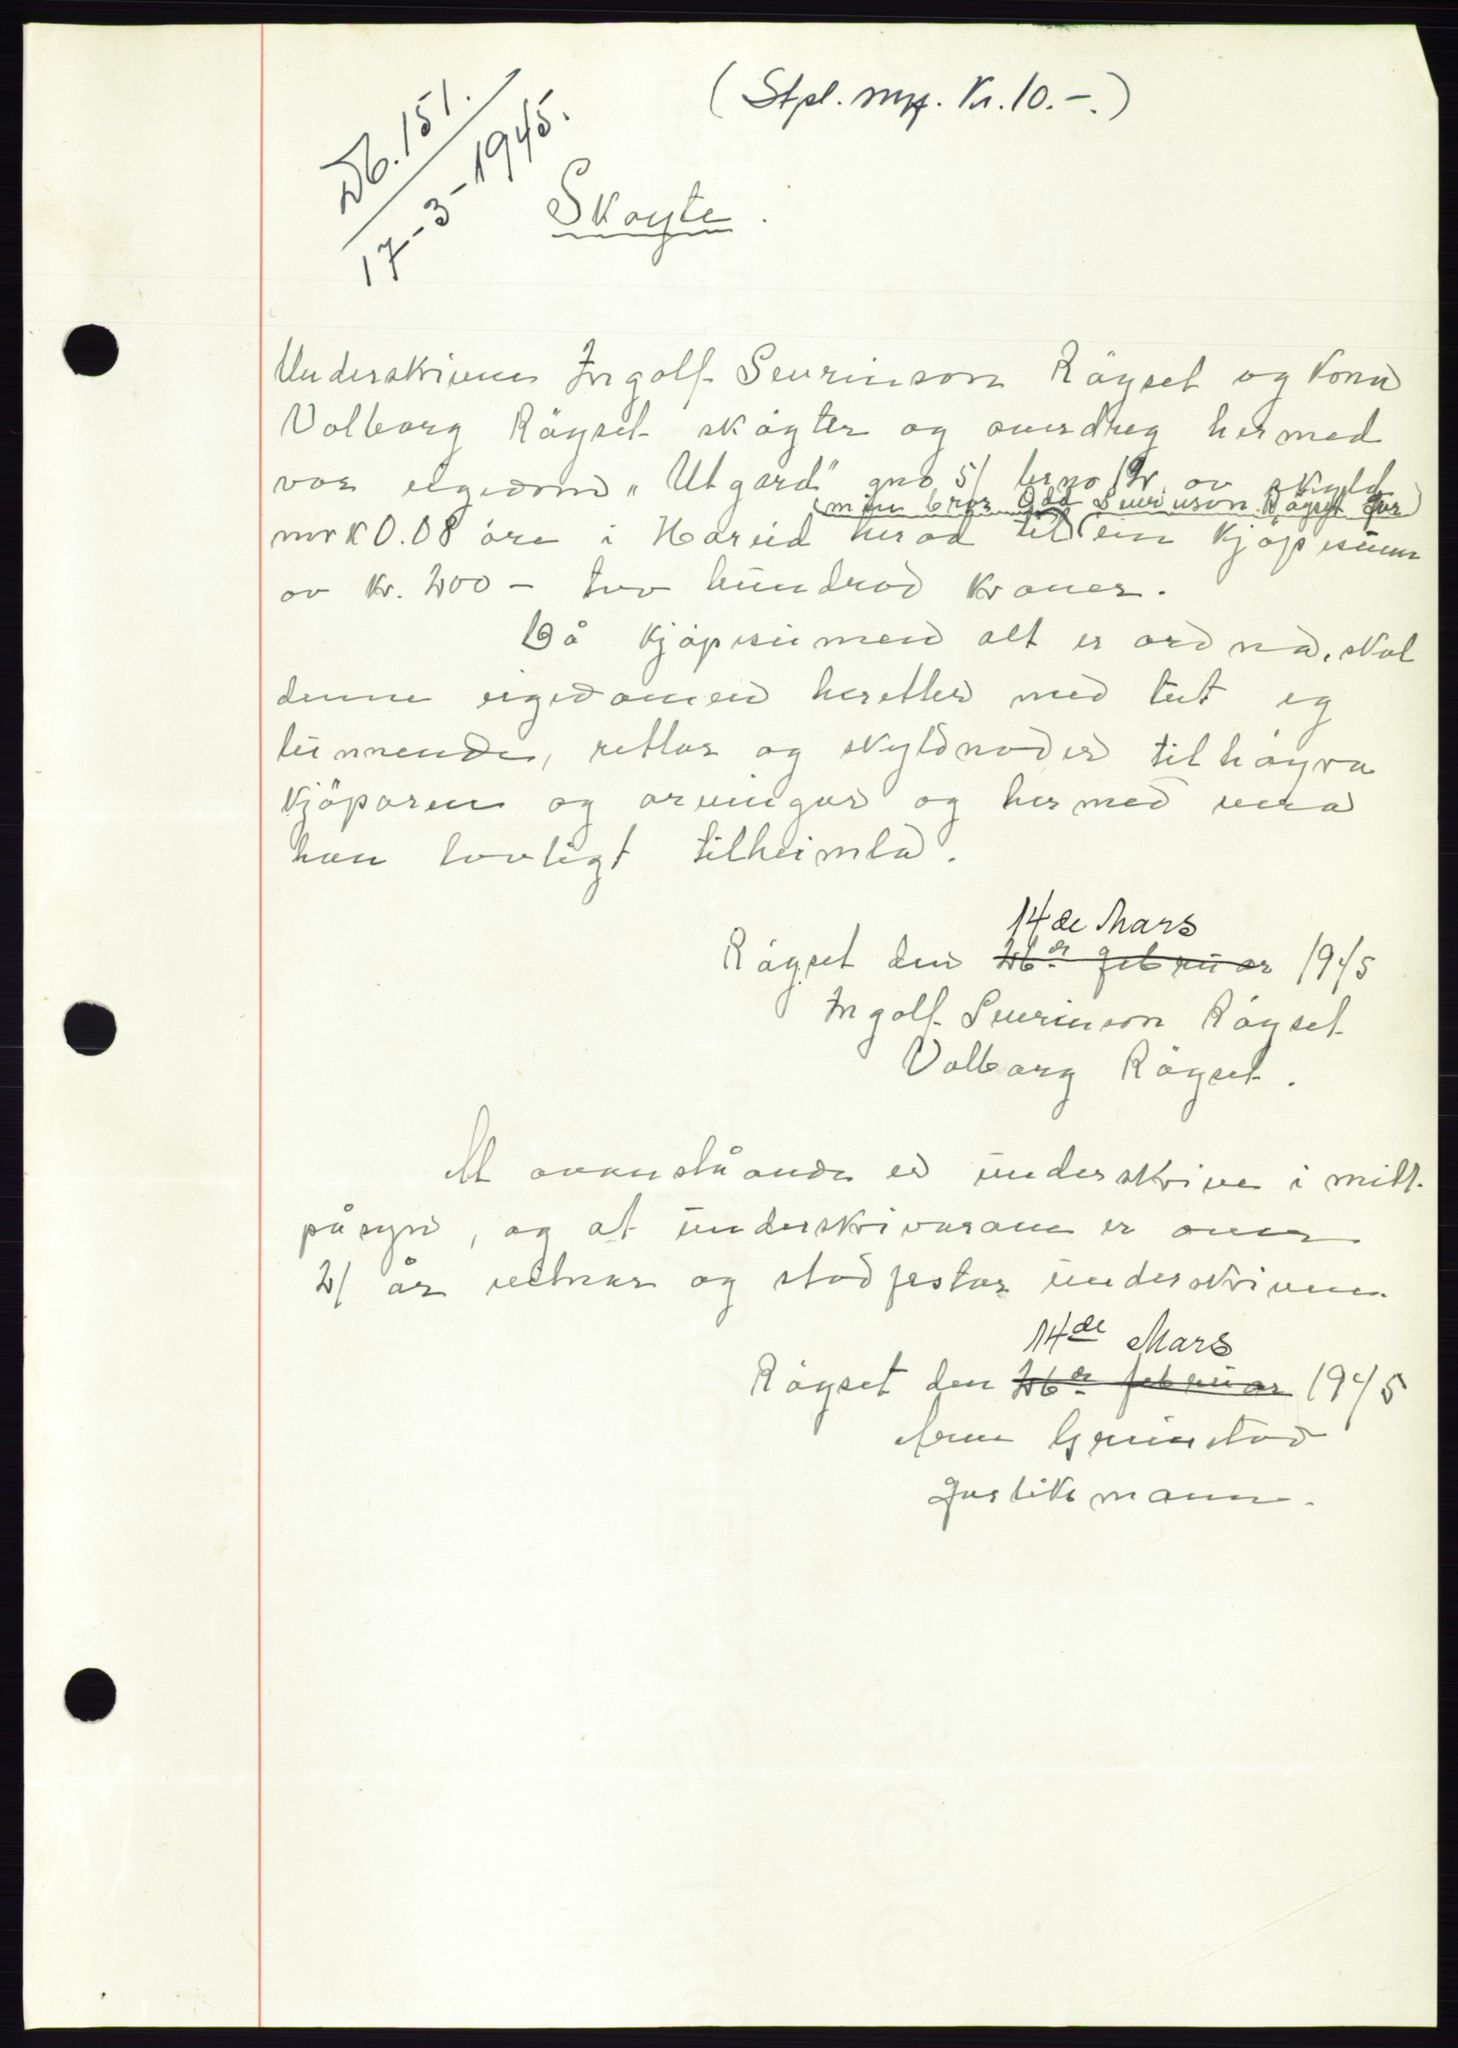 (Stpl. mrk. Kr. 10.-.)
Db. 151.
17-3-1945.
Skøyte.
Underskrivne Ingolf Sevrinson Røyset og kona
Valborg Røyset skøyter og overdreg hermed
vor eigedom „Utgard" gno 51 brno 12 av skyld
min bror Odd Sevrinson Røyset fyr
mrk 0.08 øre i Hareid herad til ein kjøpesum
av kr. 200 - tvo hundrad kroner.
Då kjøpesumen alt er ordna, skal
denne eigedomen heretter med tut og
lunnende, rettar og skyldnader tilhøyra
kjøparen og arvingar og hermed vera
han lovligt tilheimla.
14de Mars
Røyset den 26de februar 1945
Ingolf Sevrinson Røyset
Valborg Røyset.
At ovanståande er underskrive i mitt
påsyn, og at underskrivarane er over
21 år vitnar og stadfestar underskrivne.
14de Mars
Røyset den 26de februar 1945
Grimstad
forliksmann.